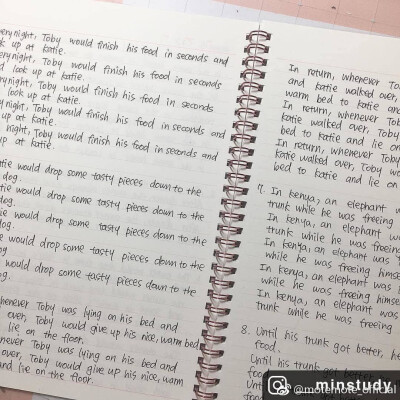 very night, Toby would finish his food in seconds and
look up at Katie.
very night, Toby would finish his food in seconds
look up at Katie.
night, Toby would finish his food in seconds
look up at Katie.
night, Toby would finish his food in seconds and
up at Katie.
night, Toby would finish his food in seconds and
up at Katie.
would drop some tasty pieces down to the
dog.
would drop some tasty pieces down to the
dog.
would drop some tasty pieces down to the
dog.
would drop some tasty pieces down to the
would drop some tasty pieces down to the
whenever Toby was lying on his bed and
over, Toby would give up his nice, warm bed
lie on the floor.
whenever Toby was lying on his bed and
over, Toby would give up his nice, warm
and lie on the floor.
In return, whenever
and Katie walked over,
warm bed to Katie and
In return, whenever
Katie walked over, Toby
bed to Katie and lie on
In return, whenever Toby
Katie walked over, Toby
bed to Katie and lie on
7. In Kenya, an elephant
trunk while he was freeing
In Kenya, an elephant
trunk while he was freeing
In Kenya, an elephant was
while he was freeing himse
In Kenya, an elephant was
while he was freeing himse
In Kenya, an elephant was
trunk while he was freeing
8. Until his trunk got better, he
food.
Until his trunk got
minstudy